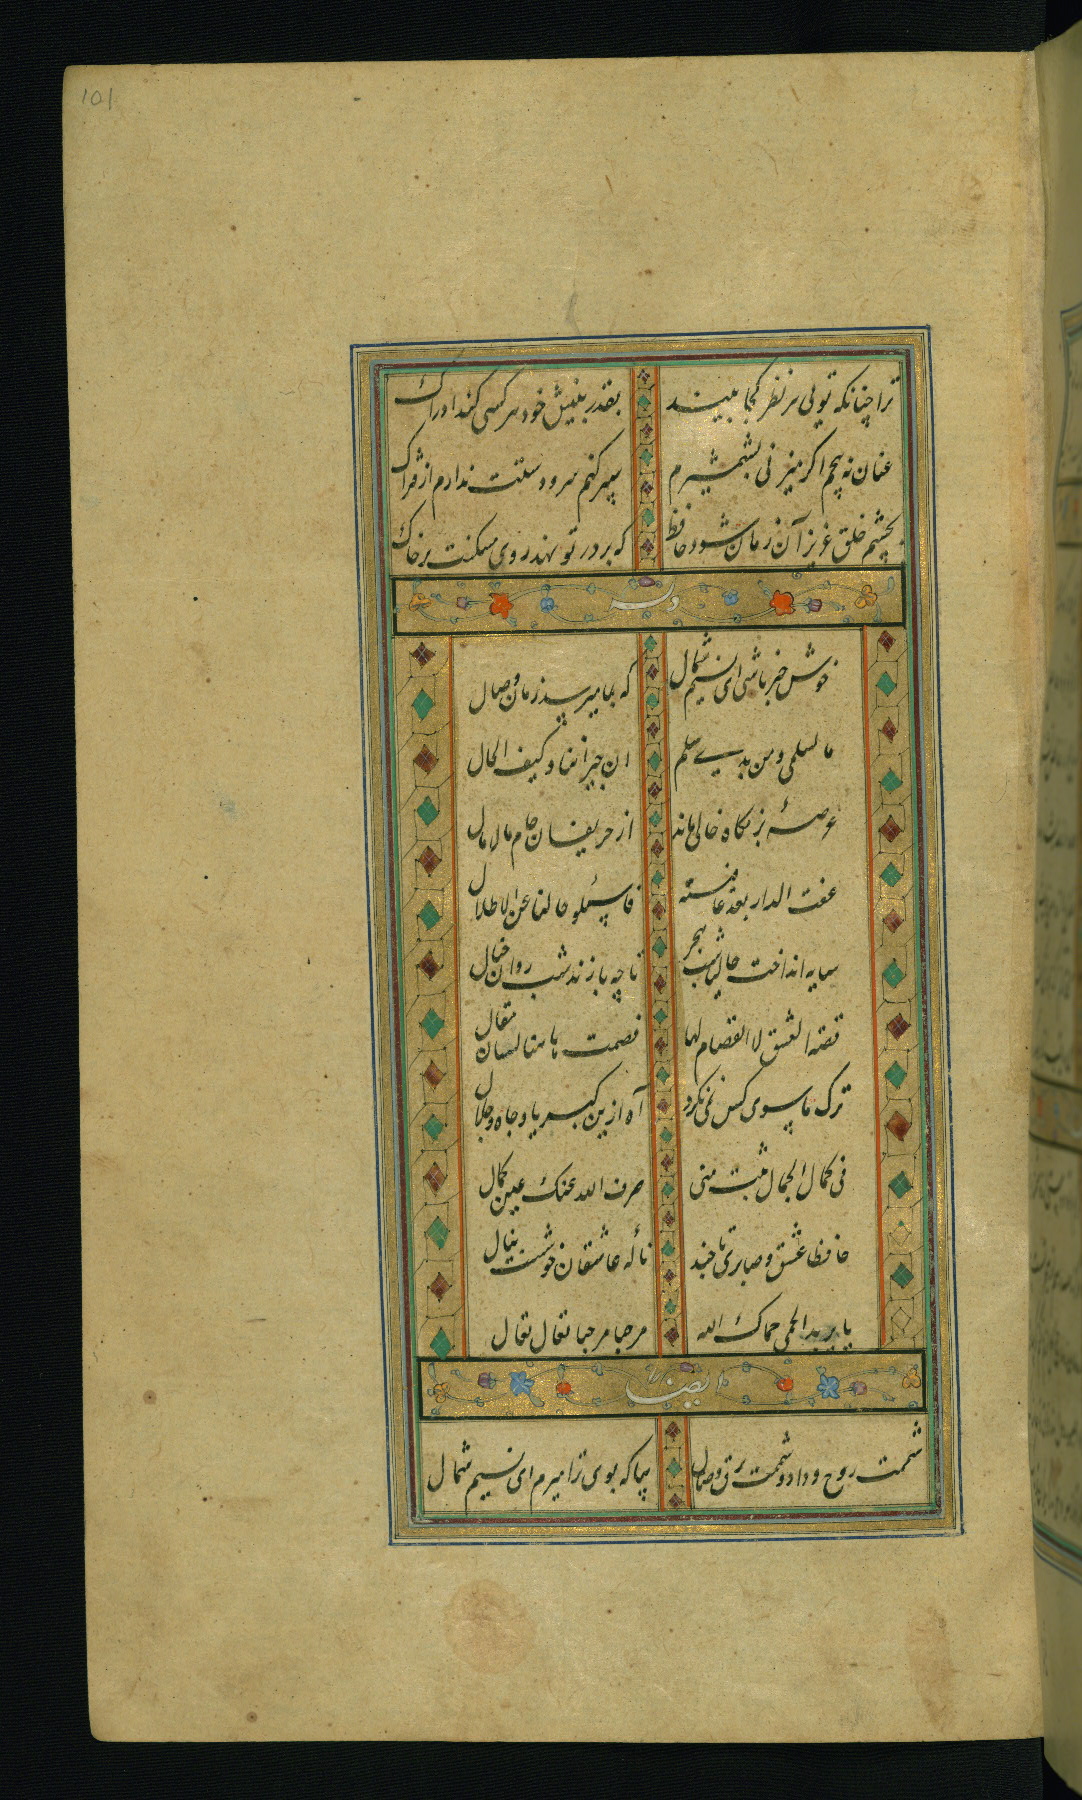 101
ترا چنانکه تویی هر نظر کجا بیند بقدر بینش خود هر کسی کند ادراک
عنان نه پیچم اکر میزنی بشمشیرم سپر کنم سر و دستت ندارم از فتراک
بچشم خلق عزیز آن زمان شود حافظ که بر در تو نهد روی مسکنت بر خاک
وله
خوش خبر باشی ای نسیم شمال که بما میرسد زمان وصال
ما لسلمی و من بذی سلم این جیراننا و کیف الحال
عرصهٔ بزمکاه خالی ماند از حریفان جام مالامال
عفت الدار بعد عافیته فاسئلو حالنا عن الاطلال
سایه انداخت حالیا شب هجر تا چه بازند شب روان خیال
قصه العشق لا انفصام لها فصمت هاهنا لسان مقال
ترک ما سوی کس نمی نکرد آه ازین کبریا و جاه و جلال
فی کمال الجمال مثبت منی صرف الله عنک عین کمال
حافظا عشق و صابری تا چند نالهٔ عاشقان خوشست بنال
یا برید الحمی حماک الله مرحبا مرحبا تعال تعال
ایضا
شممت روح وداد و شمت برق وصال بیا که بوی ترا میرم ای نسیم شمال